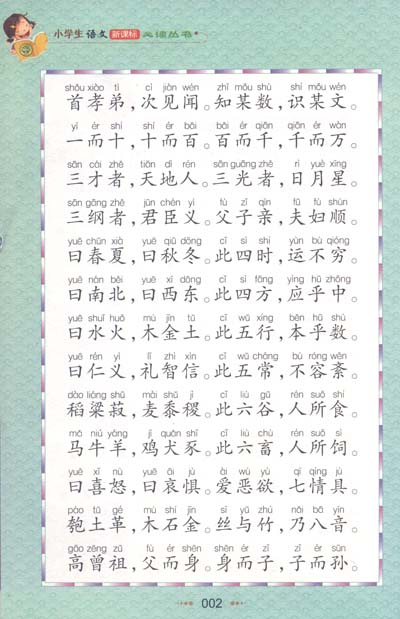 小学生语文新课标必读丛书
shǒu xiào tì cì jiàn wén zhī mǒu shù shí mǒu wén
首孝弟，次见闻。知某数，识某文。
yī ér shí shí ér bǎi bǎi ér qiān qiān ér wàn
一而十，十而百。百而千，千而万。
sān cái zhě tiān dì rén sān guāng zhě rì yuè xīng
三才者，天地人。三光者，日月星。
sān gāng zhě jūn chén yì fù zǐ qīn fū fù shùn
三纲者，君臣义。父子亲，夫妇顺。
yuē chūn xià yuē qiū dōng cǐ sì shí yùn bù qióng
曰春夏，曰秋冬。此四时，运不穷。
yuē nán běi yuē xī dōng cǐ sì fāng yìng hū zhōng
曰南北，曰西东。此四方，应乎中。
yuē shuǐ huǒ mù jīn tǔ cǐ wǔ xíng běn hū shù
曰水火，木金土。此五行，本乎数。
yuē rén yì lǐ zhì xìn cǐ wǔ cháng bù róng wěn
曰仁义，礼智信。此五常，不容紊。
dào liáng shū mài shǔ jì cǐ liù gǔ rén suǒ shí
稻粱菽，麦黍稷。此六谷，人所食。
mǎ niú yáng jī quǎn shǐ cǐ liù chù rén suǒ sì
马牛羊，鸡犬豕。此六畜，人所饲。
yuē xǐ nù yuē āi jù ài wù yù qī qíng jù
曰喜怒，曰哀惧。爱恶欲，七情具。
páo tǔ gé mù shí jīn sī yǔ zhú nǎi bā yīn
匏土革，木石金。丝与竹，乃八音。
gāo zēng zǔ fù ér shēn shēn ér zǐ zǐ ér sūn
高曾祖，父而身。身而子，子而孙。
002